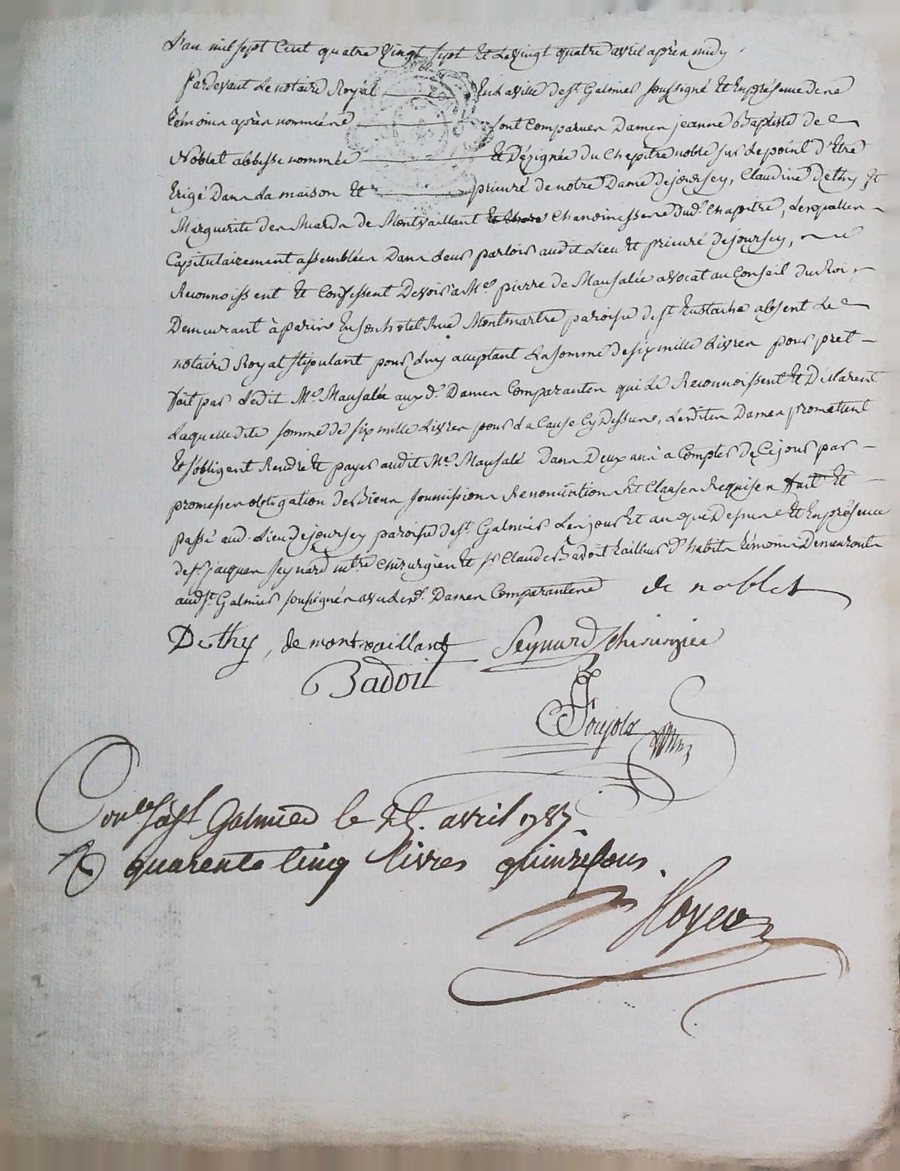 L'an mil sept Cent quatre Vingt sept Et Le Vingt quatre avril après midy
Pardevant Le notaire Royal En La ville de st. Galmier soussigné et En présence de ne
témoins après nommés sont Comparues Dames jeanne Baptiste de
Noblet abbesse nommée et Dézignée du Chapitre noble sur Le point d'Etre
Erigé Dans La maison Et prieuré de notre Dame de joursey, Claudine Dethy Et
Marguerite des Mards de Montvaillant Chanoinesses dud. Chapitre, Lesquelles
Capitulairement assemblées Dans Leurs parloir audit Lieu Et prieuré de joursey,
Reconnoissent Et Confessent Devoir a Me. pierre de Mausalée avocat au Conseil du Roi
Demeurant à paris En son hotel Rue Montmartre paroisse de st Eustache absent Le
notaire Royal stipulant pour Luy acceptant La somme de six mille Livres pour pret
fait par Ledit Me. Mausalée aux d. Dames Comparantes qui Le Reconnoissent Et Déclarent
Laquelle dite somme de six mille Livres pour La Cause Cy Dessus, Lesdites Dames promettent
Et s'obligent Rendre et payer audit Me. Mausalé Dans Deux ans a Compter de Ce jour par
promesses obligation de Biens soumissions Renontiation Et Clauses Requises fait Et
passé aud. Lieu de joursey paroisse de st. Galmier Les jour Et an que Dessus Et En présence
de sr. jacques Seynard mtre Chirurgien Et sr Claude Badoit tailleur d'habits témoins Demeurants
aud st. Galmier soussignés avec Les d. Dames Comparantes de noblet
Dethy, de montvaillant Seynard Chirurgien
Badoit
Poujols
Conlé à st Galmier le avril 1787
quarente Cinq livres quinze sous